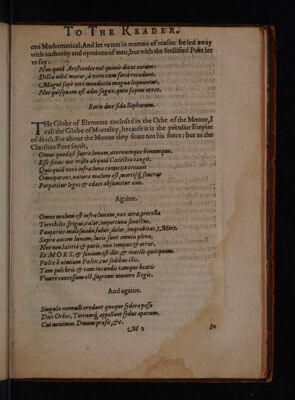 TO THE READER.
ons Mathematical. And let vs not in matters of reason be led away
with authority and opinions of men, but with the Stellified Poet let
vs say:
Non quid Aristoteles vel quiuis dicat eorum:
Dicta nihil moror, à vero cum fortè recedunt.
Magni sæpè viri mendacia magna loquuntur,
Nec quisquam est adeò sagax, quin sæpius erret.
Ratio dux fida Sopharum.
THe Globe of Elements enclosed in the Orbe of the Moone, I
call the Globe of Mortality, because it is the peculiar Empire
of death. For aboue the Moone they feare not his force: but as the
Christian Poet sayth,
Omne quod est supra lunam, æternumque bonumque
Esse scias: nec triste aliquid Cœlestia tangit.
Quicquid verò infra lunæ conuexa creauit
Omniparens, natura malum est, mortisq́ seueras
Perpetitur leges & edaci absumitur æuo.
Againe.
Omne malum est infra lunam, nox atra, procellæ
Terribiles, frigus, calor, importuna senectus,
Pauperies malesuada, labor, dolor, improbitas, & Mors.
Supra autem lunam, lucis sunt omnia plena,
Nec non lætitiæ & pacis, non tempus & error,
Et MORS, & senium est illic & inutile quicquam.
Fœlix ô nimium Fœlix, cui sedibus illis,
Tam pulchris & tam iucundis tamque beatis
Viuere concessum est, supremi munere Regis.
And againe.
Singula nonnulli credunt quoque sidera posse
Dici Orbes, Terramq́ appellant sydus opacum,
Cui minimus Diuum præsit, &c.
M 2